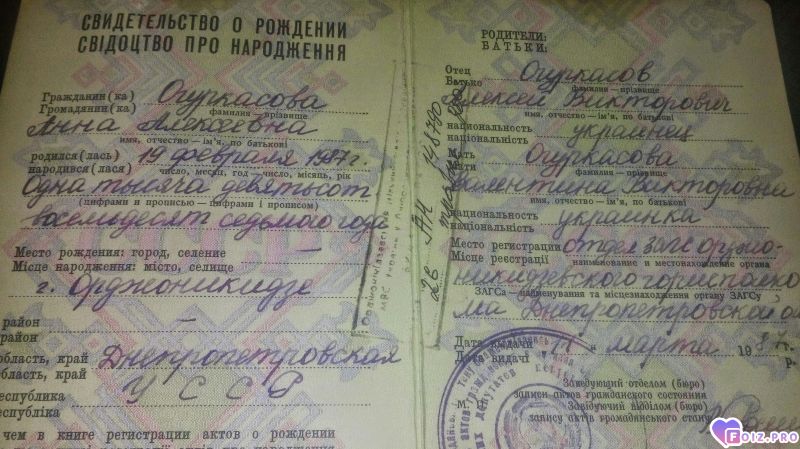 СВИДЕТЕЛЬСТВО О РОЖДЕНИИ
СВІДОЦТВО ПРО НАРОДЖЕННЯ
Гражданин (ка) Огуркасова
Громадянин (ка) фамилия—прізвище
Анна Алексеевна
имя, отчество—ім'я, по батькові
родился (лась) 19 февраля 1987 г.
народився (лася) число, месяц, год—число, місяць, рік
Одна тысяча девятьсот
(цифрами и прописью—цифрами і прописом)
восемьдесят седьмого года
Место рождения: город, селение
Місце народження: місто, селище
г. Орджоникидзе
район
район
область, край Днепропетровская
область, край
республика УССР
республіка
чем в книге регистрации актов о рождении
РОДИТЕЛИ:
БАТЬКИ:
Отец Огуркасов
Батько фамилия—прізвище
Алексей Викторович
имя, отчество—ім'я, по батькові
национальность украинец
національність
Мать Огуркасова
Мати фамилия—прізвище
Валентина Викторовна
имя, отчество—ім'я, по батькові
национальность украинка
національність
Место регистрации отдел ЗАГС Орджо-
Місце реєстрації наименование и местонахождение органа
никидзевского горисполко-
ЗАГСа—найменування та місцезнаходження органу ЗАГСу
ма Днепропетровской
Дата выдачи марта 1987 г.
Дата видачі р.
М. П.
Заведующий отделом (бюро)
записи актов гражданского состояния
Завідуючий відділом (бюро)
запису актів громадянського стану
АН 148740
FDIZ.PRO